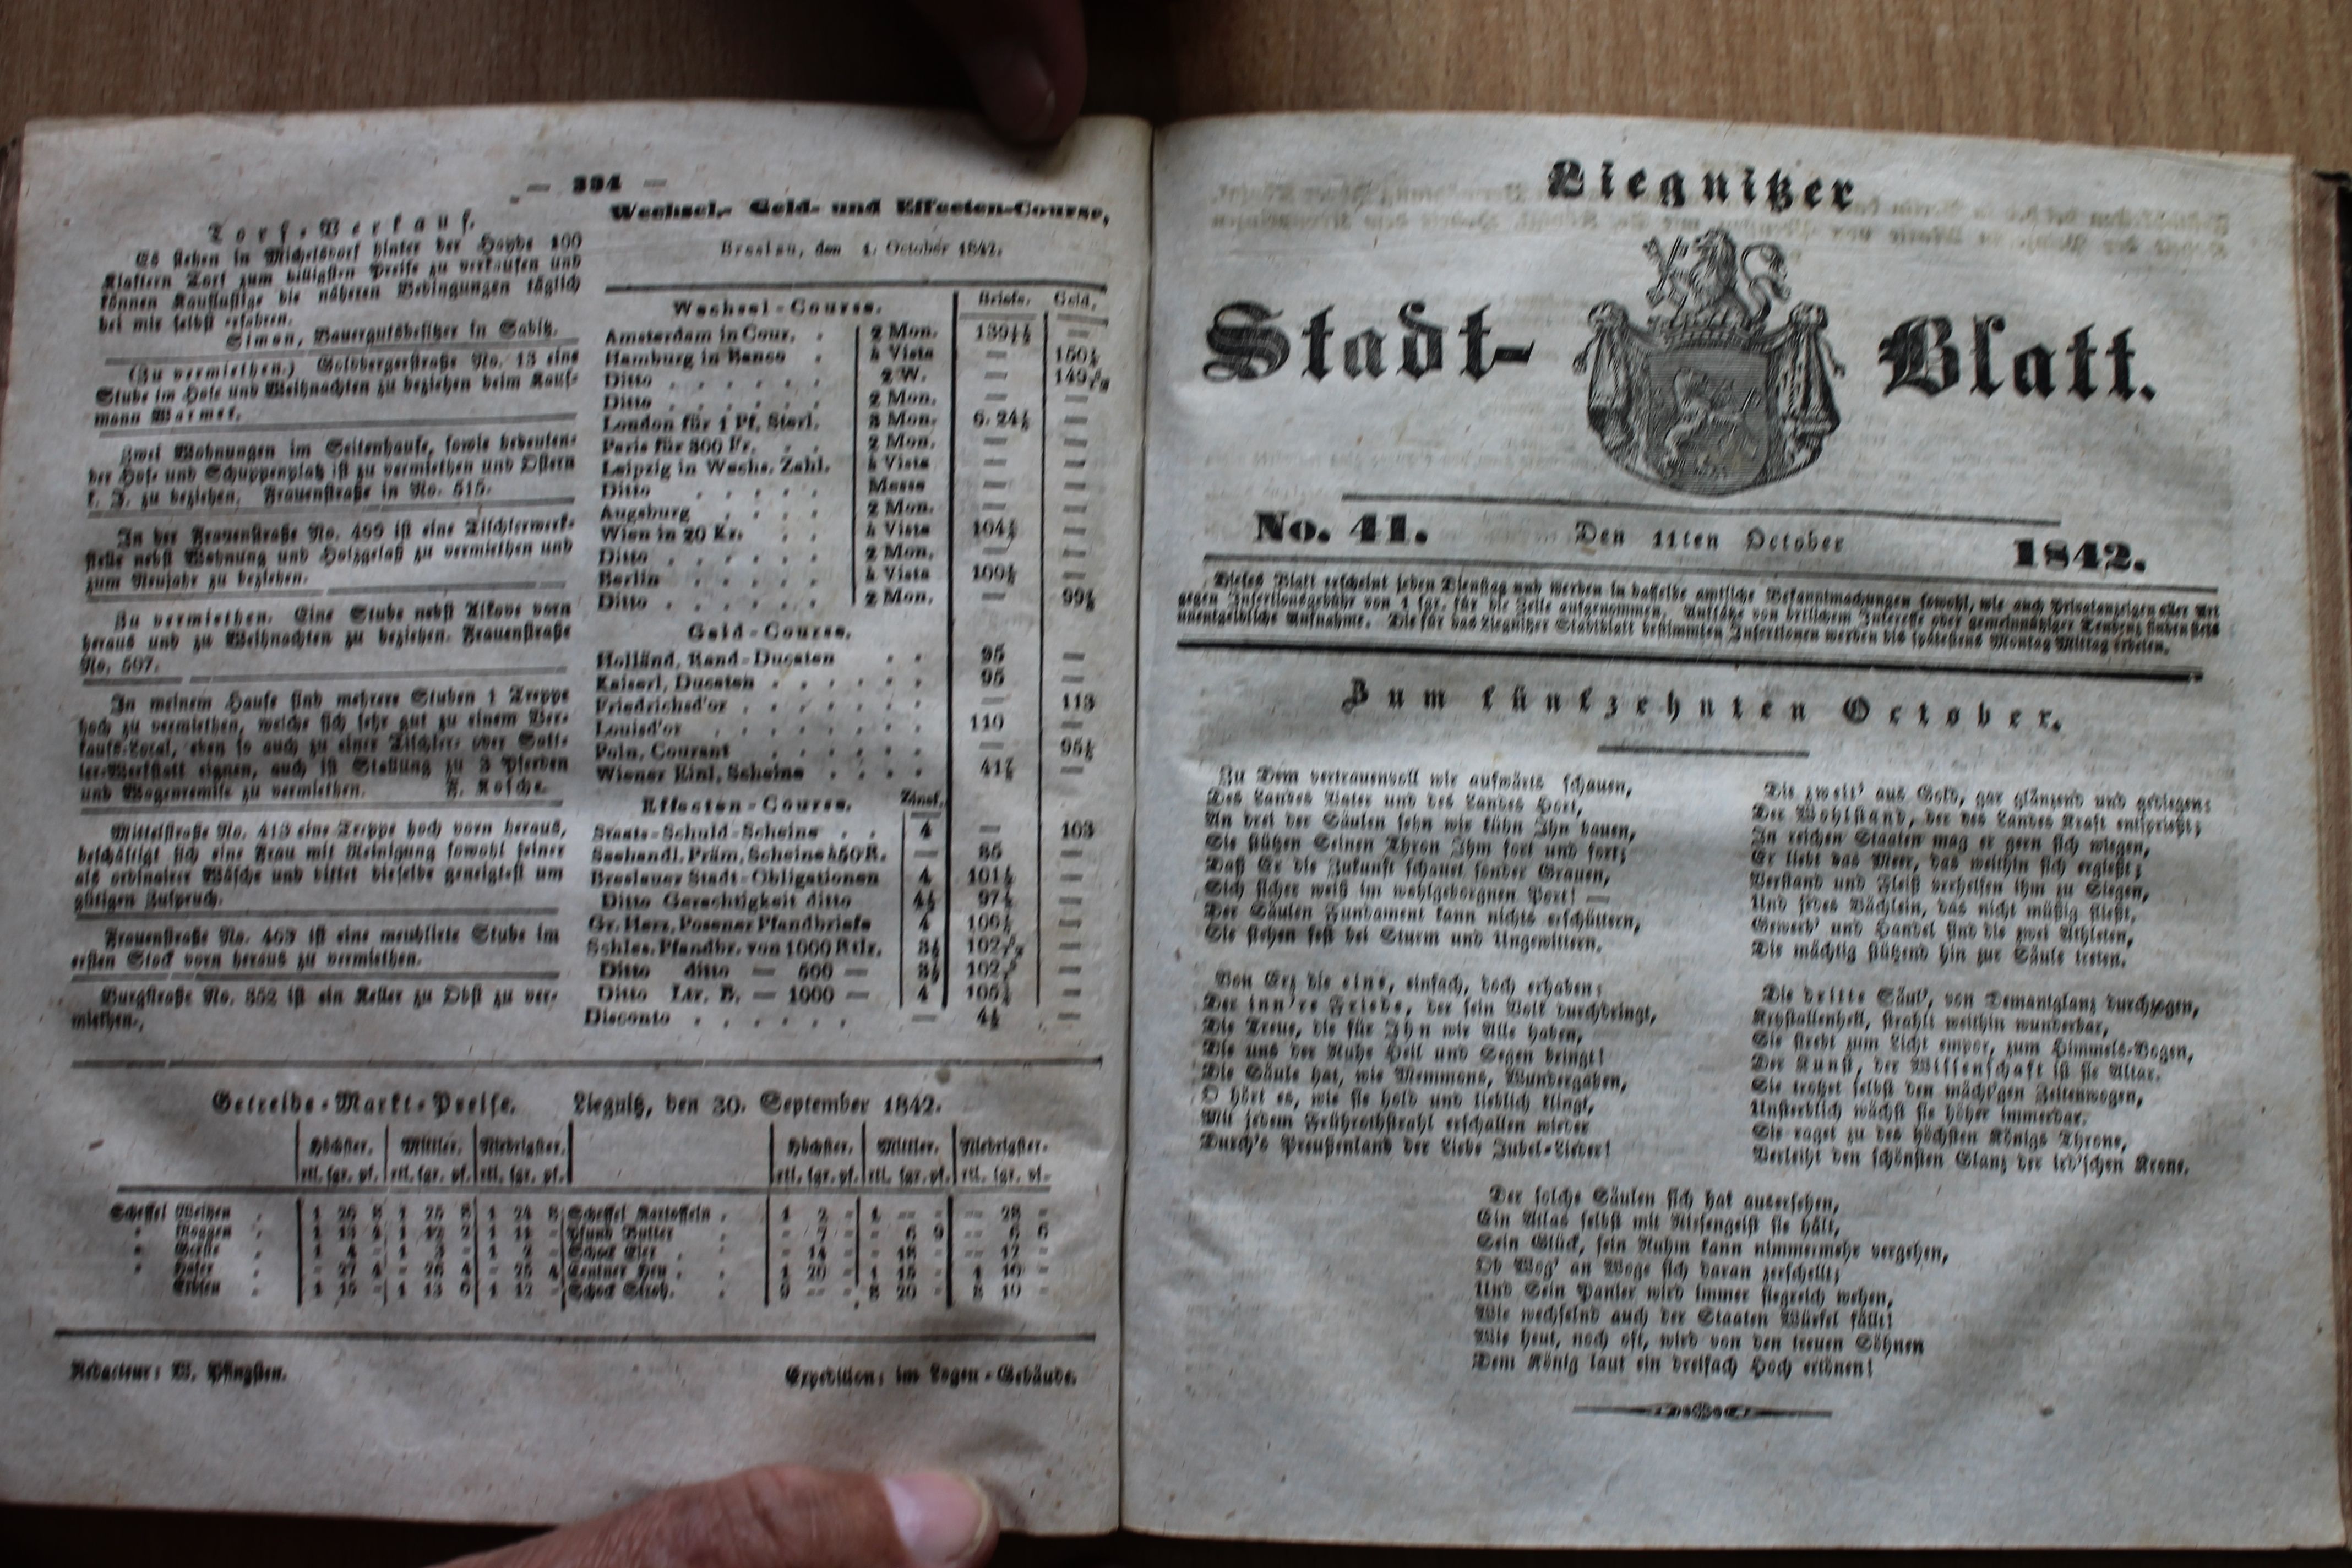 — 394 —
Torf-Verkauf.
Es stehen in Michelsdorf hinter der Haybe 100
Klaftern Torf zum billigsten Preise zu verkaufen und
können Kauflustige die näheren Bedingungen täglich
bei mir selbst erfahren.
Simon, Bauergutsbesitzer in Sabitz.
(Zu vermiethen.) Goldbergerstraße No. 13 eine
Stube im Hofe und Weihnachten zu beziehen beim Kauf-
mann Warmer.
Zwei Wohnungen im Seitenhause, sowie bedeuten-
der Hof- und Schuppenplatz ist zu vermiethen und Ostern
k. J. zu beziehen. Frauenstraße in No. 515.
In der Frauenstraße No. 499 ist eine Tischlerwerk-
stelle nebst Wohnung und Holzgelaß zu vermiethen und
zum Neujahr zu beziehen.
Zu vermiethen. Eine Stube nebst Alkove vorn
heraus und zu Weihnachten zu beziehen. Frauenstraße
No. 507.
In meinem Hause sind mehrere Stuben 1 Treppe
hoch zu vermiethen, welche sich sehr gut zu einem Ver-
kaufs-Local, eben so auch zu einer Tischler- oder Satt-
ler-Werkstatt eignen, auch ist Stallung zu 3 Pferden
und Wagenremise zu vermiethen. F. Rosche.
Mittelstraße No. 413 eine Treppe hoch vorn heraus,
beschäftigt sich eine Frau mit Reinigung sowohl feiner
als ordinairer Wäsche und bittet dieselbe geneigtest um
gütigen Zuspruch.
Frauenstraße No. 463 ist eine meublirte Stube im
ersten Stock vorn heraus zu vermiethen.
Burgstraße No. 352 ist ein Keller zu Obst zu ver-
miethen.
Wechsel-, Geld- und Effecten-Course,
Breslau, den 4. October 1842.
Wechsel-Course. Briefe. Geld.
Amsterdam in Cour. 2 Mon. —
Hamburg in Banco à Vista — 150½
Ditto 2 W. —
Ditto 2 Mon. — —
London für 1 Pf. Sterl. 3 Mon. 6. 24½ —
Paris für 300 Fr. 2 Mon. — —
Leipzig in Wechs. Zahl. à Vista — —
Ditto Messe — —
Augsburg 2 Mon. — —
Wien in 20 Kr. à Vista —
Ditto 2 Mon. — —
Berlin à Vista —
Ditto 2 Mon. —
Geld-Course.
Holländ. Rand-Ducaten 95 —
Kaiserl. Ducaten 95 —
Friedrichsd'or — 113
Louisd'or 110 —
Poln. Courant —
Wiener Einl. Scheine —
Effecten-Course. Zinsf.
Staats-Schuld-Scheine 4 — 103
Seehandl. Präm. Scheine à 50 R. — 85 —
Breslauer Stadt-Obligationen 4 —
Ditto Gerechtigkeit ditto 4½ —
Gr. Herz. Posener Pfandbriefe 4 —
Schles. Pfandbr. von 1000 Rtlr. 3½ —
Ditto ditto — 500 — 3½ —
Ditto Ltr. B. — 1000 — 4 —
Disconto — 4½ —
Getreide-Markt-Preise. Liegnitz, den 30. September 1842.
Höchster. Mittler. Niedrigster. Höchster. Mittler. Niedrigster.
rtl. sgr. pf. rtl. sgr. pf. rtl. sgr. pf. rtl. sgr. pf. rtl. sgr. pf. rtl. sgr. pf.
Scheffel Weitzen 1 26 8 1 25 8 1 24 8 Scheffel Kartoffeln 1 2 - 1 -- - -- 28 -
Roggen 1 13 1 12 2 1 11 - Pfund Butter - 7 - - 6 9 -- 6 6
Gerste 1 4 - 1 3 - 1 2 - Schock Eier - 14 - - 13 - -- 12 -
Hafer - 27 4 - 26 4 - 25 4 Zentner Heu 1 20 - 1 15 - 1 10 -
Erbsen 1 15 - 1 13 1 12 - Schock Stroh. 9 -- - 8 20 - 8 10 -
Redacteur: W. Pfingsten. Expedition: im Logen-Gebäude.
Liegnitzer
Stadt-Blatt.
No. 41. Den 11ten October 1842.
Dieses Blatt erscheint jeden Dienstag und werden in dasselbe amtliche Bekanntmachungen sowohl, wie auch Privatanzeigen aller Art
gegen Insertionsgebühr von 1 sgr. für die Zeile aufgenommen. Aufsätze von örtlichem Interesse oder gemeinnütziger Tendenz finden stets
unentgeldliche Aufnahme. Die für das Liegnitzer Stadtblatt bestimmten Insertionen werden bis spätestens Montag Mittag erbeten.
Zum fünfzehnten October.
Zu Dem vertrauenvoll wir aufwärts schauen,
Des Landes Vater und des Landes Hort,
An drei der Säulen sehn wir kühn Ihn bauen,
Sie stützen Seinen Thron Ihm fort und fort;
Daß Er die Zukunft schauet sonder Grauen,
Sich sicher weiß im wohlgeborgnen Port! —
Der Säulen Fundament kann nichts erschüttern,
Sie stehen fest bei Sturm und Ungewittern.
Von Erz die eine, einfach, doch erhaben:
Der inn're Friede, der sein Volk durchdringt,
Die Treue, die für Ihn wir Alle haben,
Die uns der Ruhe Heil und Segen bringt!
Die Säule hat, wie Memnons, Wundergaben,
O hört es, wie sie hold und lieblich klingt,
Mit jedem Frührothstrahl erschallen wieder
Durch's Preußenland der Liebe Jubel-Lieder!
Die zweit' aus Gold, gar glänzend und gediegen:
Der Wohlstand, der des Landes Kraft entsprießt;
In reichen Staaten mag er gern sich wiegen,
Er liebt das Meer, das weithin sich ergießt;
Verstand und Fleiß verhelfen ihm zu Siegen,
Und jedes Bächlein, das nicht müßig fließt,
Gewerb' und Handel sind die zwei Athleten,
Die mächtig stützend hin zur Säule treten.
Die dritte Säul', von Demantglanz durchzogen,
Krystallenhell, strahlt weithin wunderbar,
Sie strebt zum Licht empor, zum Himmels-Bogen,
Der Kunst, der Wissenschaft ist sie Altar.
Sie trotzet selbst den mächt'gen Zeitenwogen,
Unsterblich wächst sie höher immerdar.
Sie raget zu des höchsten Königs Throne,
Verleiht den schönsten Glanz der ird'schen Krone.
Der solche Säulen sich hat ausersehen,
Ein Atlas selbst mit Riesengeist sie hält,
Sein Glück, sein Ruhm kann nimmermehr vergehen,
Ob Wog' an Woge sich daran zerschellt;
Und Sein Panier wird immer siegreich wehen,
Wie wechselnd auch der Staaten Würfel fällt!
Wie heut, noch oft, wird von den treuen Söhnen
Dem König laut ein dreifach Hoch ertönen!